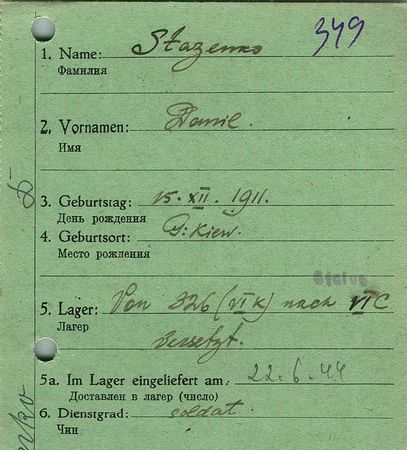 349
1. Name: Stazenko
Фамилия
2. Vornamen: Danil.
Имя
3. Geburtstag: 15. XII. 1911.
День рождения
4. Geburtsort: G: Kiew.
Место рождения
Stalag
5. Lager: Von 326 (VI K) nach VI C
Лагер
versetzt.
5a. Im Lager eingeliefert am: 22. 6. 44
Доставлен в лагер (число)
6. Dienstgrad: soldat.
Чин